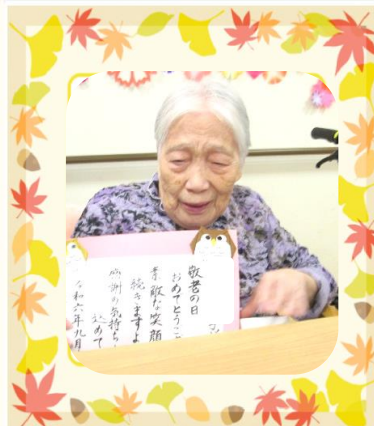 敬老の日
おめでとうご
素敵な笑顔
続きますよ
感謝の気持ち
込めて
令和六年九月